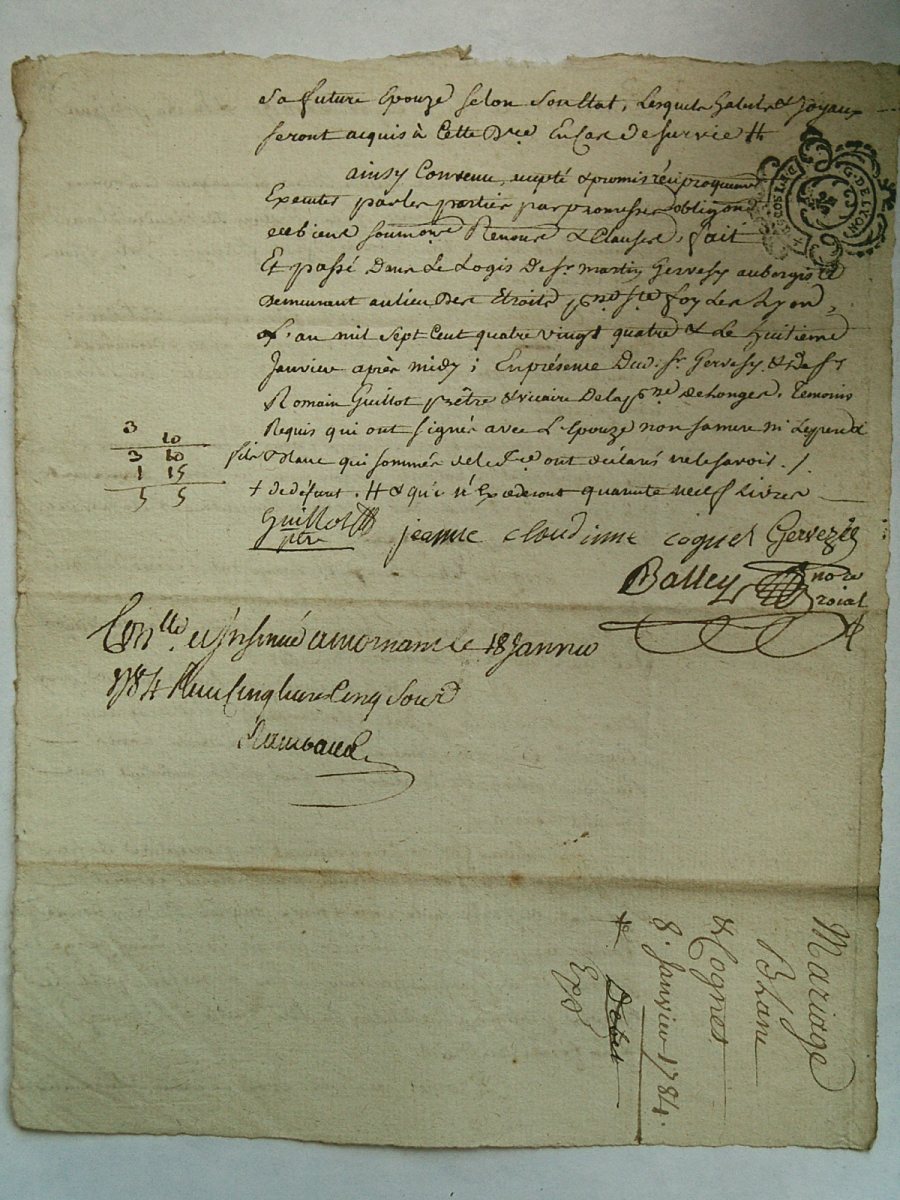 sa future Epouze selon son Etat, lesquels habits & Joyaux
seront acquis à cette Dre. En Cas de survie #
ainsy Convenu, accepté & promis réciproquement
Executer par les parties par promesses obligaon.
de biens soumons. Renons. & Clauses, fait
Et passé Dans Le Logis De sr. martin Gervesy aubergiste
Demeurant au lieu Des Etroits psse. ste foy Les Lyon,
an mil sept Cent quatre vingt quatre & Le huitieme
Janvier après midy ; En présence Dud. sr. Gervesy & De sr
Romain Guillot prêtre & vicaire De la psse. de Longes. Temoins
Requis qui ont signés avec L'Epouze non sa mere ni Leyraud
fils & Blanc qui sommés de le fre. ont déclarés ne le savoir ./.
+ de défunt . # & qui n'Excéderont quarante neuf Livres
3 10
3 10
1 15
5 5
Guillot
ptre
jeanne claudinne cognet
Gervezie
Balley
nore
roial
Conlle. et Insinué a mornant le 18 Janvier
1784 Reçu Cinq livres Cinq sous
Rambaud
G. DE LYON
Mariage
Blanc
& Cognet
8. Janvier 1784.
Debet
Expd